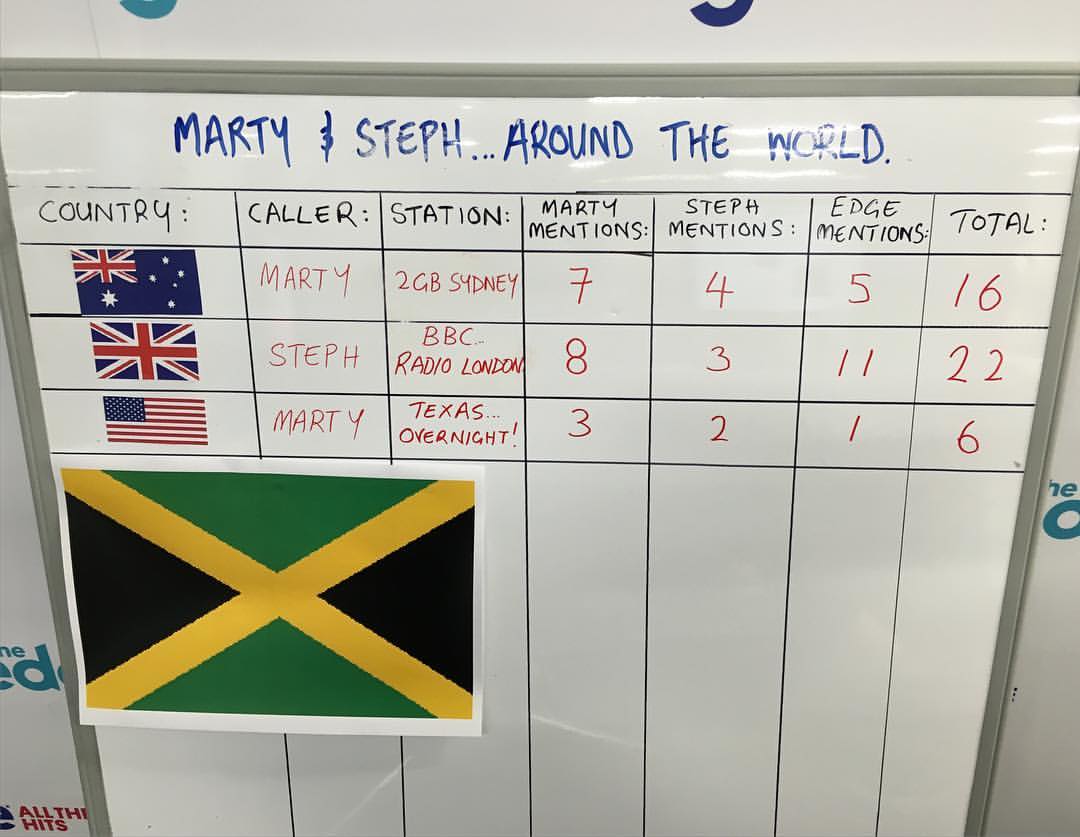 MARTY & STEPH... AROUND THE WORLD.
COUNTRY: CALLER: STATION: MARTY MENTIONS: STEPH MENTIONS: EDGE MENTIONS: TOTAL:
MARTY 2GB SYDNEY 7 4 5 16
STEPH BBC... RADIO LONDON 8 3 11 22
MARTY TEXAS... OVERNIGHT! 3 2 1 6
he
he
ed
ALL TH
HITS